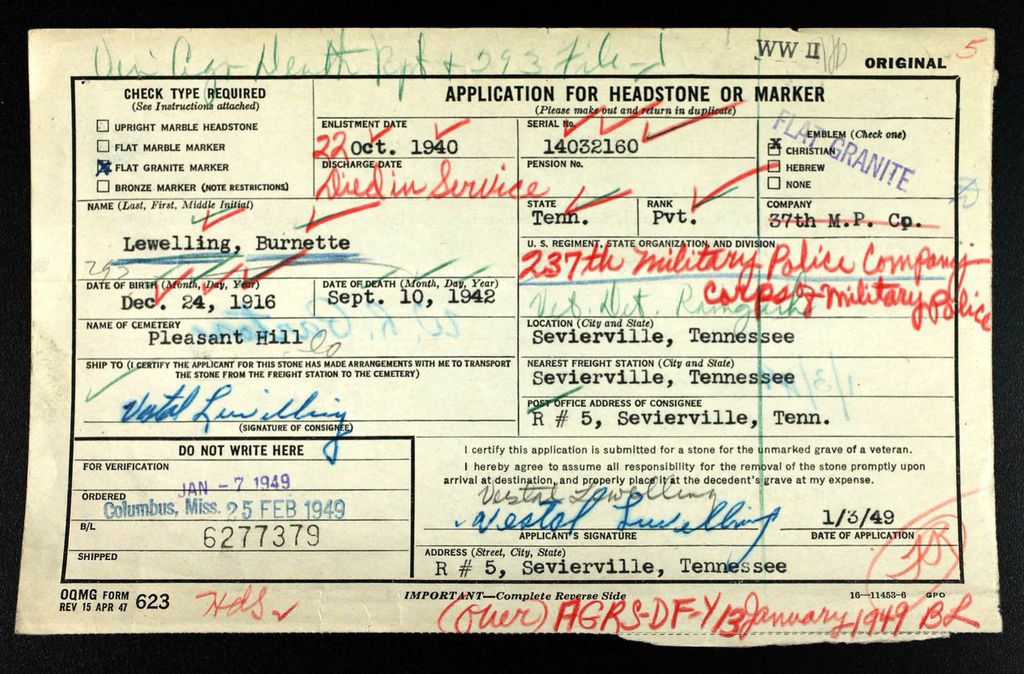 Death Rpt + 293 File
WW II
ORIGINAL
5
CHECK TYPE REQUIRED
(See Instructions attached)
UPRIGHT MARBLE HEADSTONE
FLAT MARBLE MARKER
X FLAT GRANITE MARKER
BRONZE MARKER (NOTE RESTRICTIONS)
APPLICATION FOR HEADSTONE OR MARKER
(Please make out and return in duplicate)
ENLISTMENT DATE
22 Oct. 1940
DISCHARGE DATE
Died in Service
SERIAL No.
14032160
PENSION No.
EMBLEM (Check one)
X CHRISTIAN
HEBREW
NONE
FLAT GRANITE
NAME (Last, First, Middle Initial)
Lewelling, Burnette
293
STATE
Tenn.
RANK
Pvt.
COMPANY
37th M.P. Cp.
U. S. REGIMENT, STATE ORGANIZATION, AND DIVISION
237th Military Police Company
Corps of Military Police
Vet. Det.
DATE OF BIRTH (Month, Day, Year)
Dec. 24, 1916
DATE OF DEATH (Month, Day, Year)
Sept. 10, 1942
NAME OF CEMETERY
Pleasant Hill
LOCATION (City and State)
Sevierville, Tennessee
SHIP TO (I CERTIFY THE APPLICANT FOR THIS STONE HAS MADE ARRANGEMENTS WITH ME TO TRANSPORT
THE STONE FROM THE FREIGHT STATION TO THE CEMETERY)
Vestal Luwilling
(SIGNATURE OF CONSIGNEE)
NEAREST FREIGHT STATION (City and State)
Sevierville, Tennessee
POST OFFICE ADDRESS OF CONSIGNEE
R # 5, Sevierville, Tenn.
DO NOT WRITE HERE
FOR VERIFICATION
JAN - 7 1949
ORDERED
Columbus, Miss. 25 FEB 1949
B/L
6277379
SHIPPED
I certify this application is submitted for a stone for the unmarked grave of a veteran.
I hereby agree to assume all responsibility for the removal of the stone promptly upon
arrival at destination, and properly place it at the decedent's grave at my expense.
Vestal Lewelling
Vestal Luwelling
APPLICANT'S SIGNATURE
1/3/49
DATE OF APPLICATION
ADDRESS (Street, City, State)
R # 5, Sevierville, Tennessee
OQMG FORM
REV 15 APR 47 623
IMPORTANT—Complete Reverse Side
16—11453-6 GPO
(over) AGRS-DF-Y 13 January 1949 BL